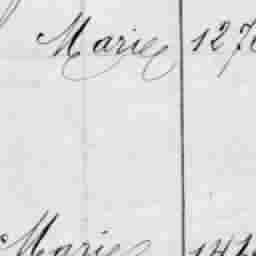 Marie 127
Marie 14